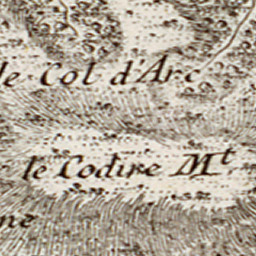 le Col d'Arc
le Codire Mt
ne